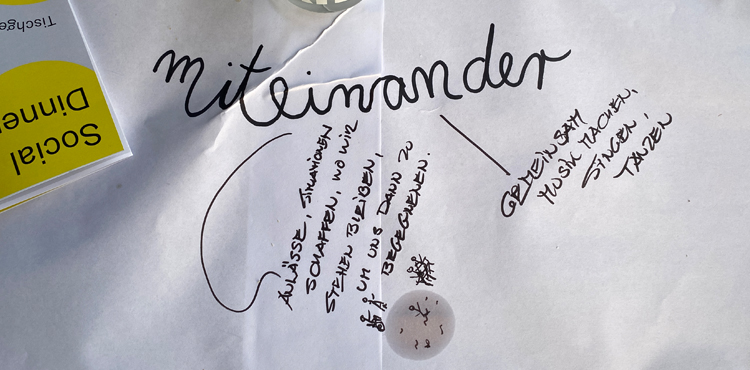 miteinander
ANLÄSSE, SITUATIONEN
SCHAFFEN, WO WIR
STEHEN BLEIBEN,
UM UNS DANN ZU
BEGEGNENEN.
GEMEINSAM
MUSIK MACHEN,
SINGEN,
TANZEN
Social
Dinner
Tischge